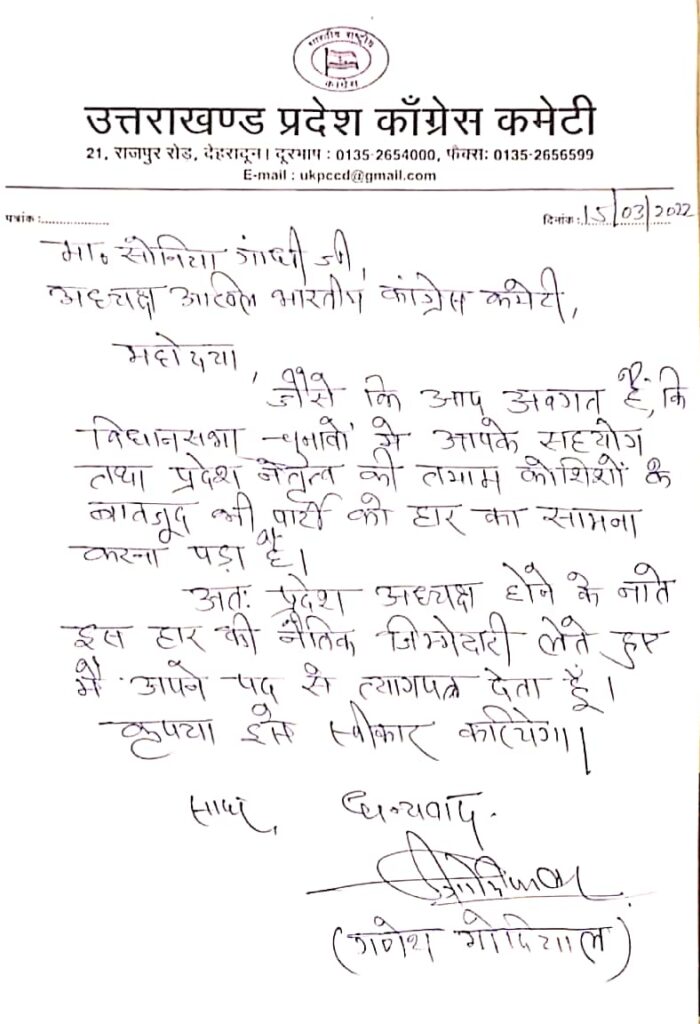 भारतीय राष्ट्रीय
कांग्रेस
उत्तराखण्ड प्रदेश काँग्रेस कमेटी
21, राजपुर रोड, देहरादून। दूरभाष : 0135-2654000, फैक्स: 0135-2656599
E-mail : ukpccd@gmail.com
पत्रांक:.................... दिनांक:.15/03/2022
मा० सोनिया गांधी जी,
अध्यक्ष अखिल भारतीय कांग्रेस कमेटी,
महोदया,
जैसे कि आप अवगत हैं, कि
विधानसभा चुनावों में आपके सहयोग
तथा प्रदेश नेतृत्व की तमाम कोशिशों के
बावजूद भी पार्टी को हार का सामना
करना पड़ा है।
अतः प्रदेश अध्यक्ष होने के नाते
इस हार की नैतिक जिम्मेदारी लेते हुए
मैं अपने पद से त्यागपत्र देता हूँ।
कृपया इसे स्वीकार करियेगा।
सादर, धन्यवाद.
(गणेश गोदियाल)